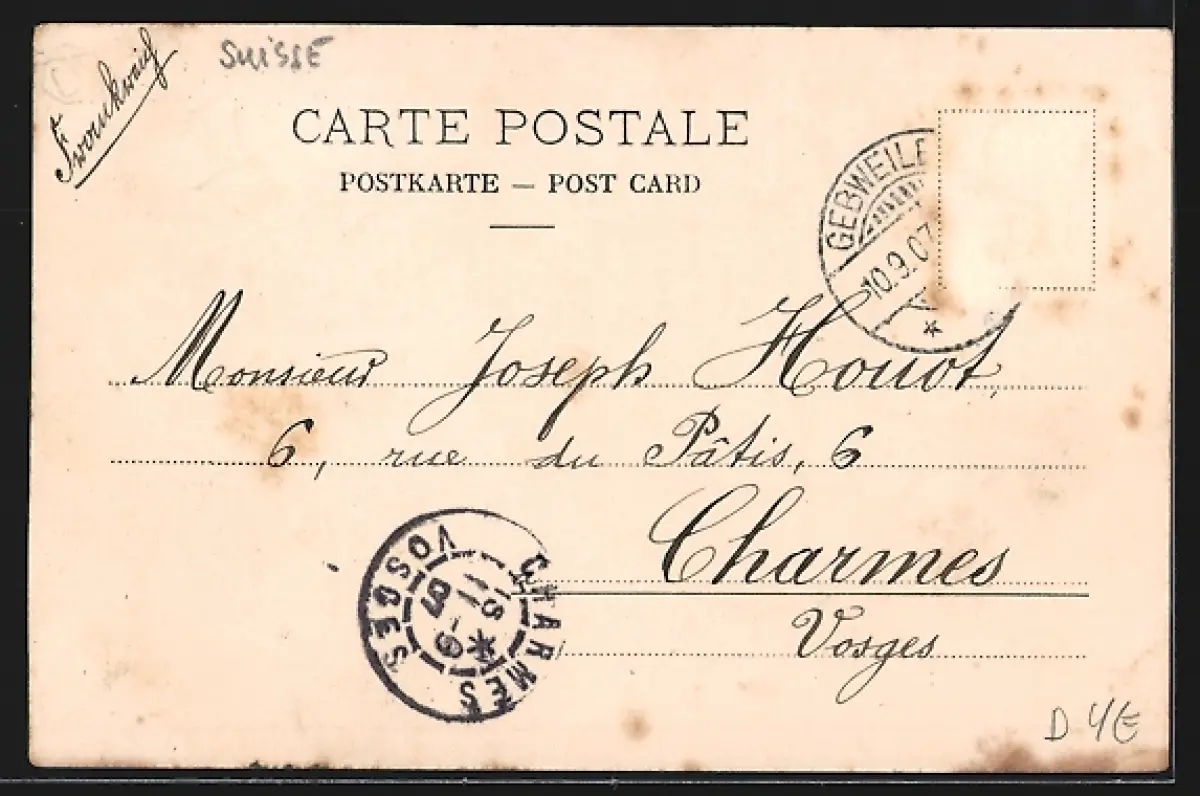 SUISSE
CARTE POSTALE
POSTKARTE — POST CARD
GEBWEILE
10.9.07
Monsieur Joseph Houot,
6, rue du Pâtis, 6
Charmes
Vosges
CHARMES
VOSGES
D 4/E